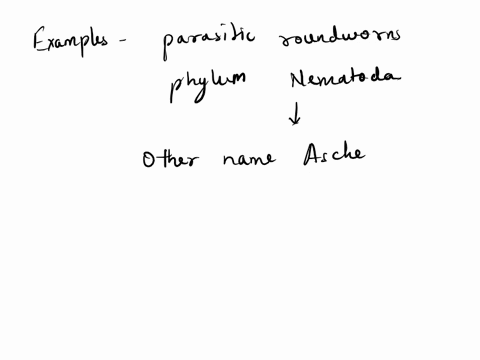 Examples - parasitic roundworns
phylum Nematoda
↓
Other name Asche